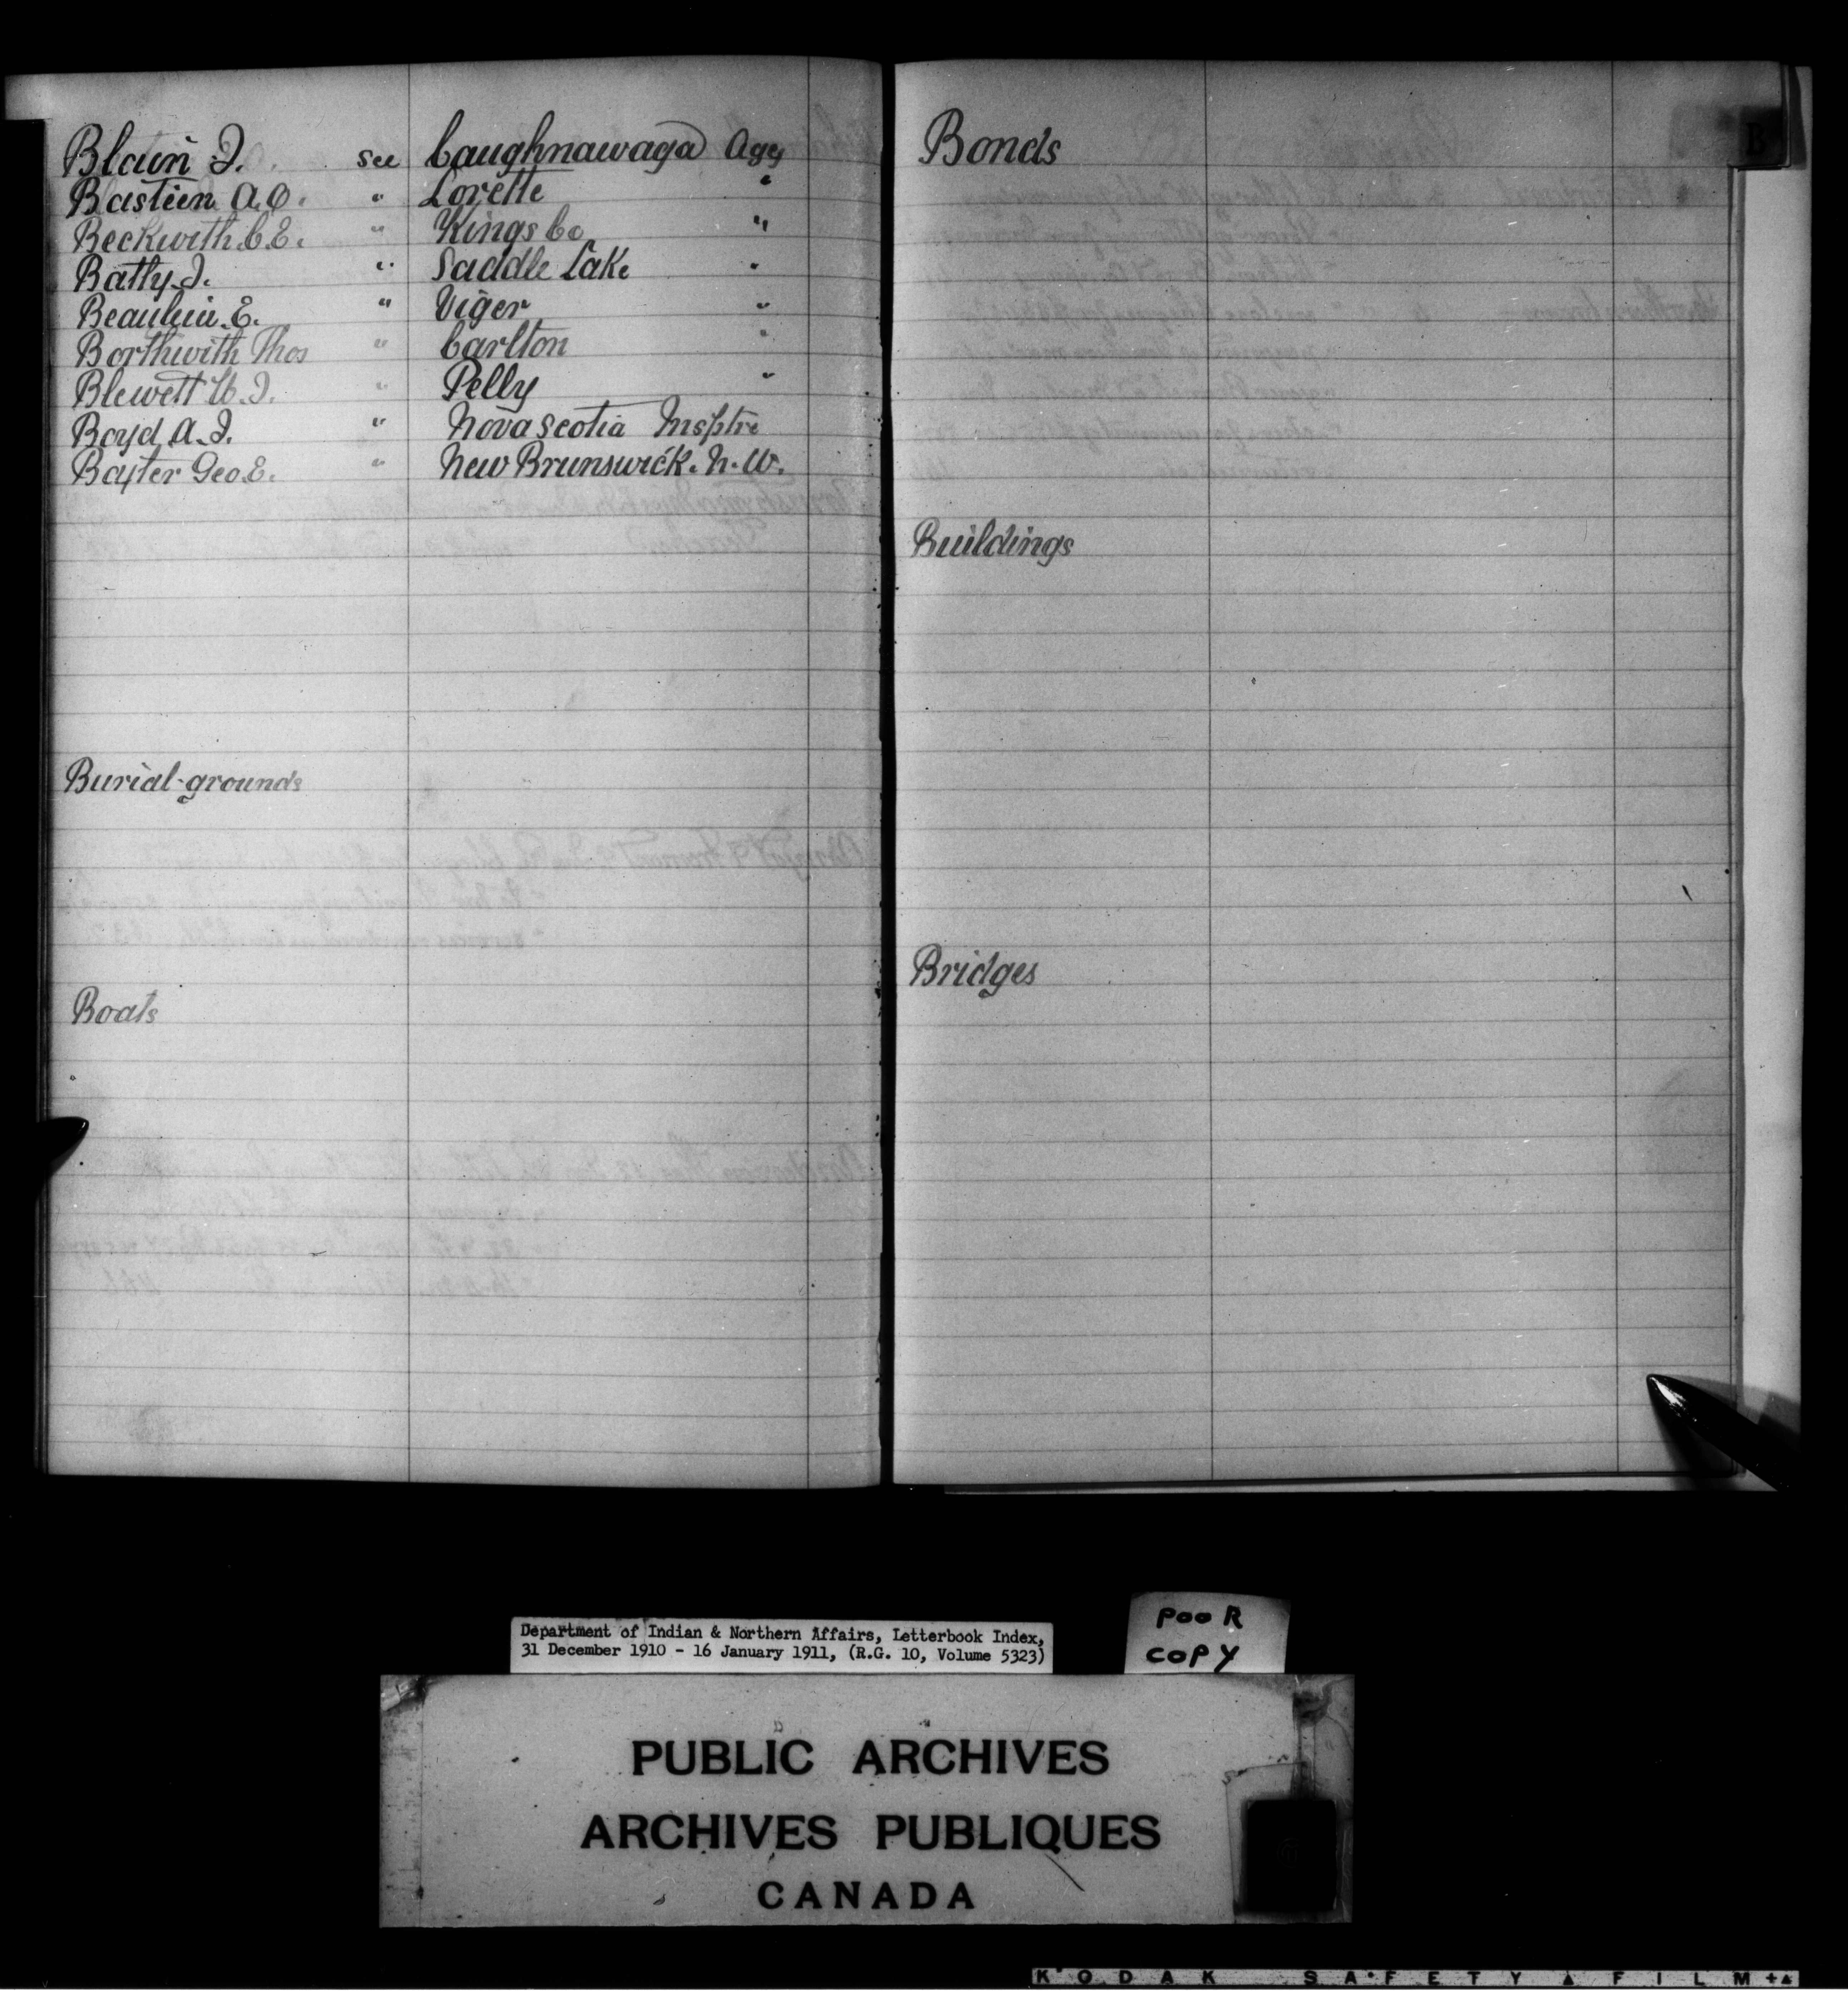 Blain J. see Caughnawaga Agy
Bastien A.O. " Lorette "
Beckwith C.E. " Kings Co "
Batty J. " Saddle Lake "
Beaulieu E. " Viger "
Borthwith Thos " Carlton "
Blewett W.J. " Pelly "
Boyd A.J. " Nova Scotia Insptre
Baxter Geo. E. " New Brunswick. N.W.
Burial-grounds
Boats
B
Bonds
Buildings
Bridges
Department of Indian & Northern Affairs, Letterbook Index,
31 December 1910 - 16 January 1911, (R.G. 10, Volume 5323)
POOR
COPY
PUBLIC ARCHIVES
ARCHIVES PUBLIQUES
CANADA
KODAK SAFETY FILM